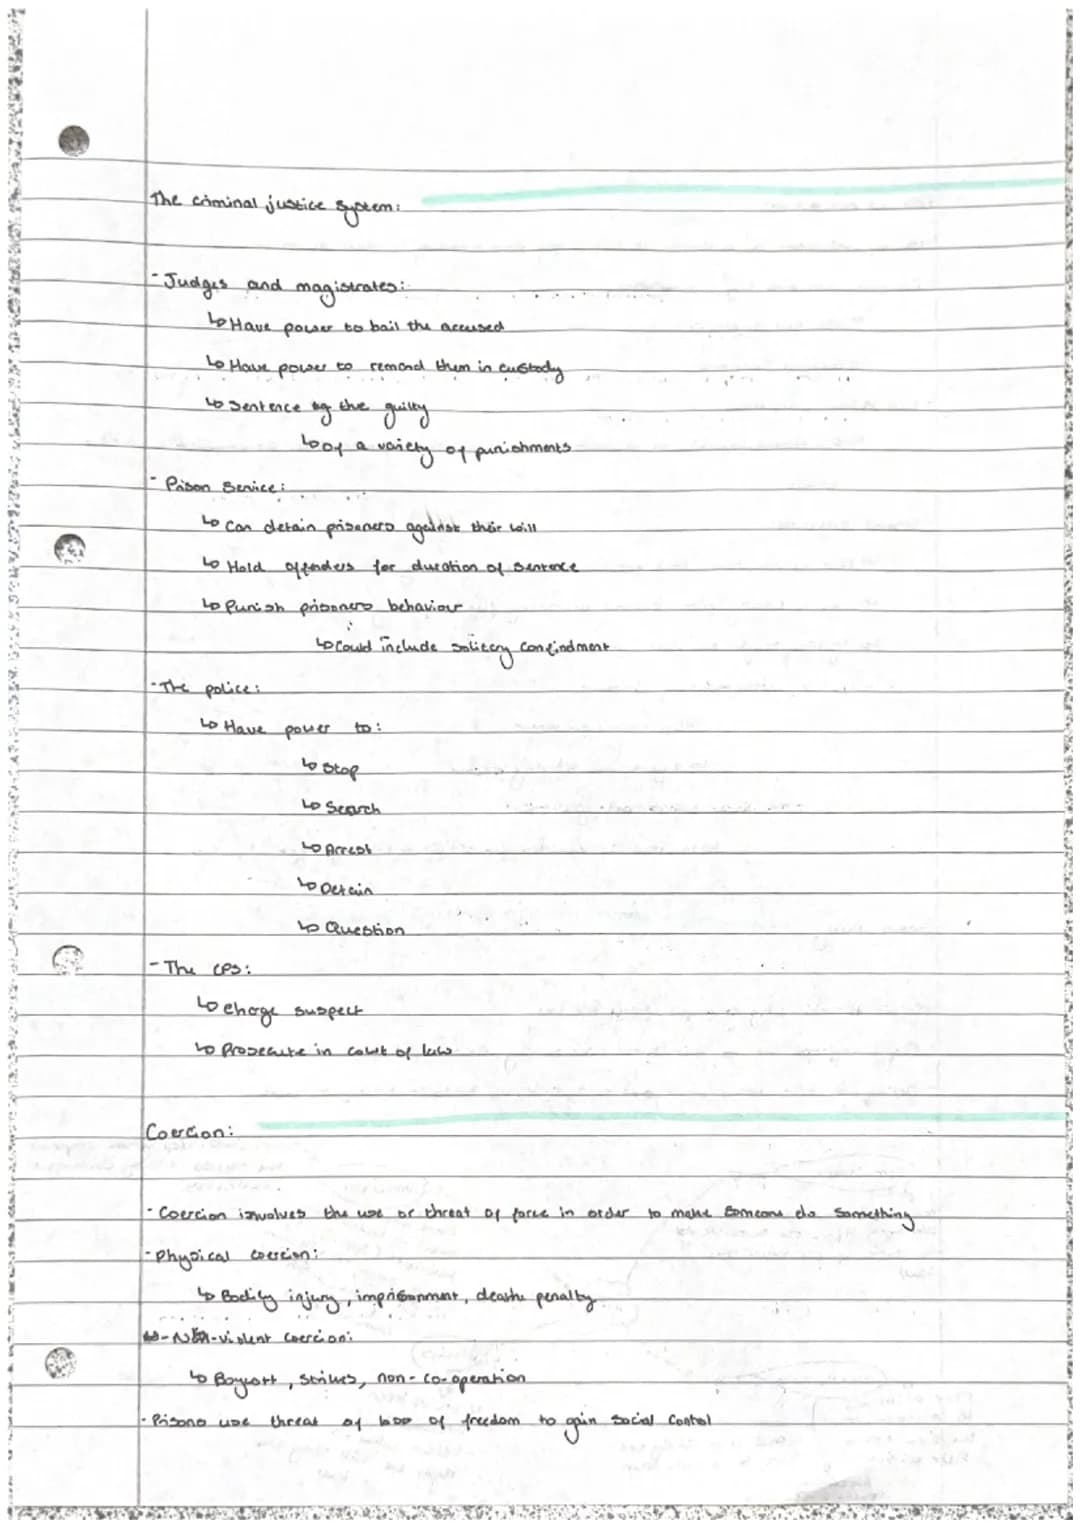 The criminal justice system:
- Judges and magistrates:
↳ Have power to bail the accused
↳ Have power to remand them in custody
↳ Sentence the guilty
↳ of a variety of punishments
- Prison Service:
↳ Can detain prisoners against their will
↳ Hold offenders for duration of sentence
↳ Punish prisoners behaviour
↳ Could include solitery confindment
- The police:
↳ Have power to:
↳ Stop
↳ Search
↳ Arrest
↳ Detain
↳ Question
- The CPS:
↳ Charge suspect
↳ Prosecute in court of law
Coercion:
- Coercion involves the use or threat of force in order to make someone do something
- Physical coercion:
↳ Bodily injury, imprisonment, death penalty
- Non-violent coercion:
↳ Boycott, strikes, non-co-operation
- Prisons use threat of loss of freedom to gain social control